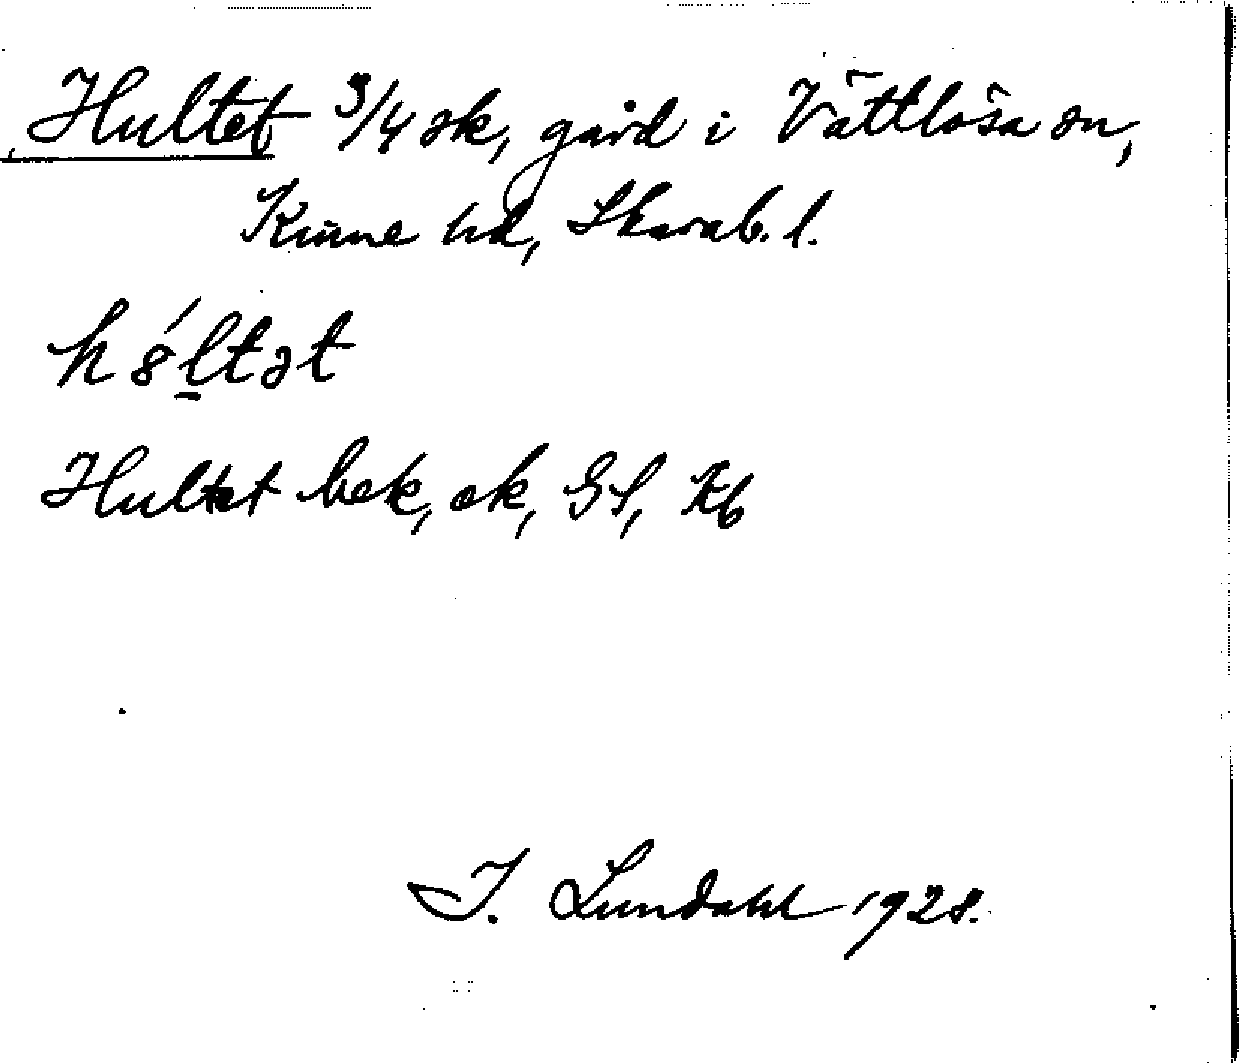 Hultet 3/4 sk, gård i Vättlösa sn,
Kinne hd, Skarab. l.
h8́l̲tət
Hultet bek, ek, Gl, Kb
I. Lundahl 1928.